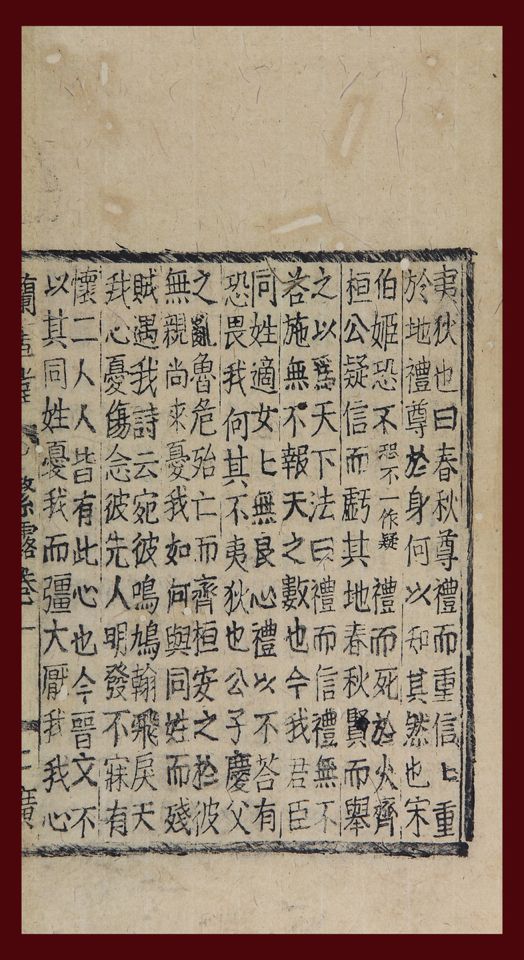 夷狄也曰春秋尊禮而重信〻重
於地禮尊於身何以知其然也宋
伯姬恐不恐不一作疑禮而死於火齊
桓公疑信而虧其地春秋賢而舉
之以爲天下法曰禮而信禮無不
荅施無不報天之數也今我君臣
同姓適女〻無良心禮以不荅有
恐畏我何其不夷狄也公子慶父
之亂魯危殆亡而齊桓安之於彼
無親尚來憂我如何與同姓而殘
賊遇我詩云宛彼鳴鳩翰飛戾天
我心憂傷念彼先人明發不寐有
懷二人人皆有此心也今晉文不
以其同姓憂我而彊大厭我我心
蘭 堂 繁露卷一 二 廣